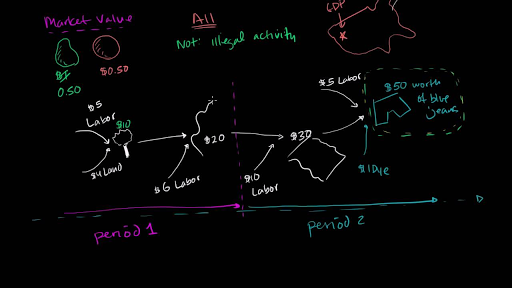 Market Value
$1
0.50
$0.50
All
Not: illegal activity
GDP
$5
Labor
$10
$4 Land
$20
$6 Labor
$30
$10
Labor
$5 Labor
$50 worth
of blue
jeans
$1 Dye
period 1
period 2